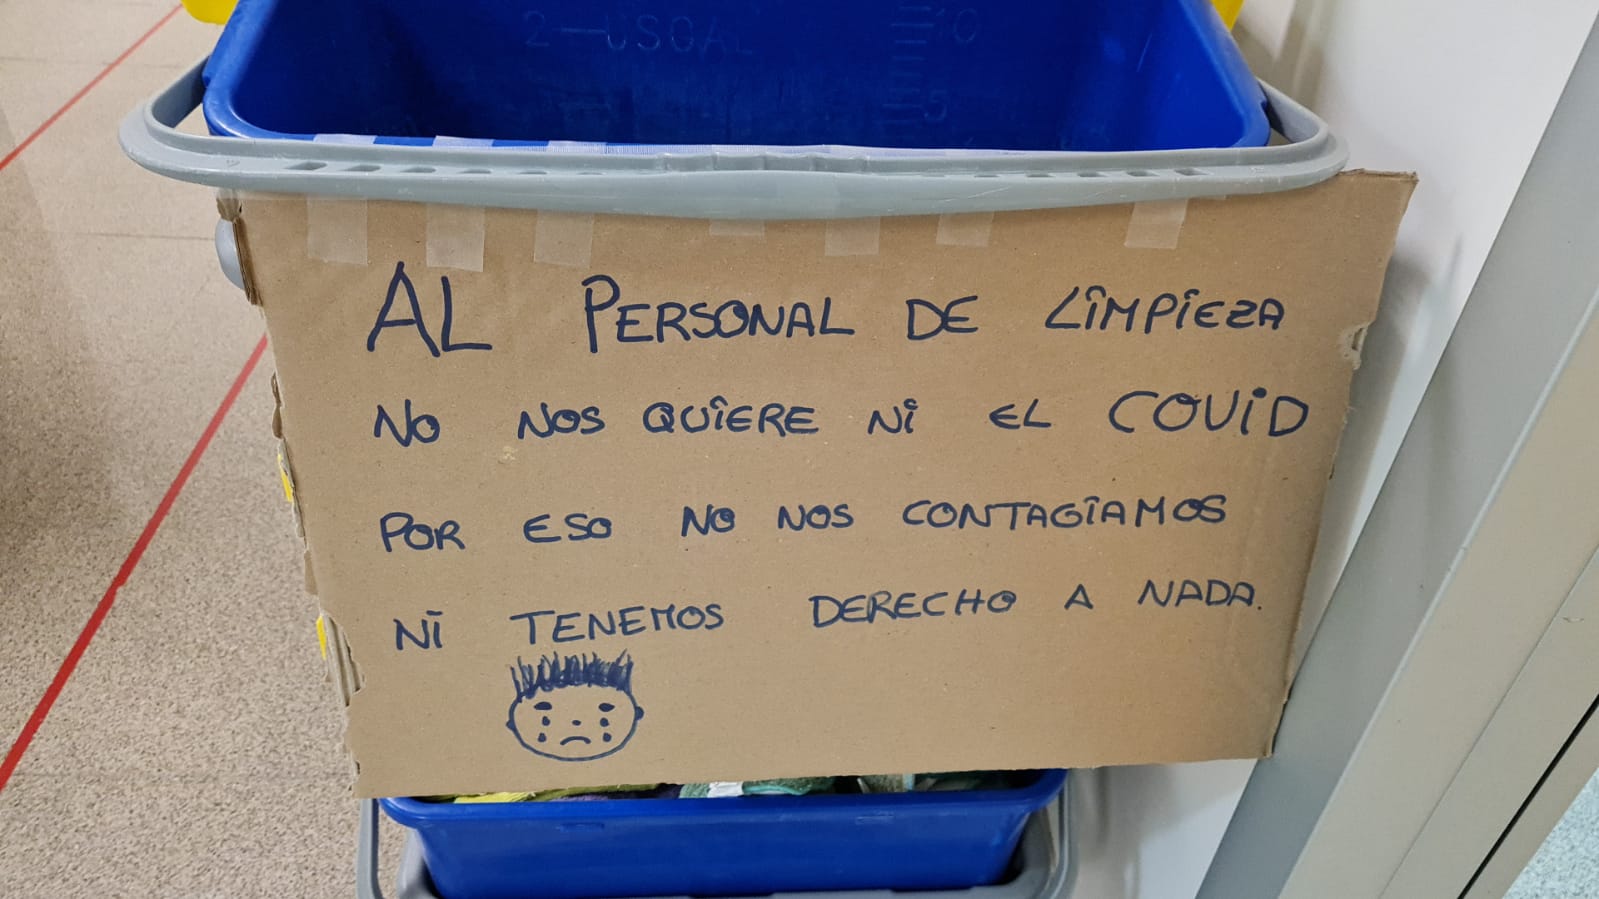 2 — USO AL
10
5
AL PERSONAL DE LIMPIEZA
NO NOS QUIERE NI EL COVID
POR ESO NO NOS CONTAGIAMOS
NI TENEMOS DERECHO A NADA.